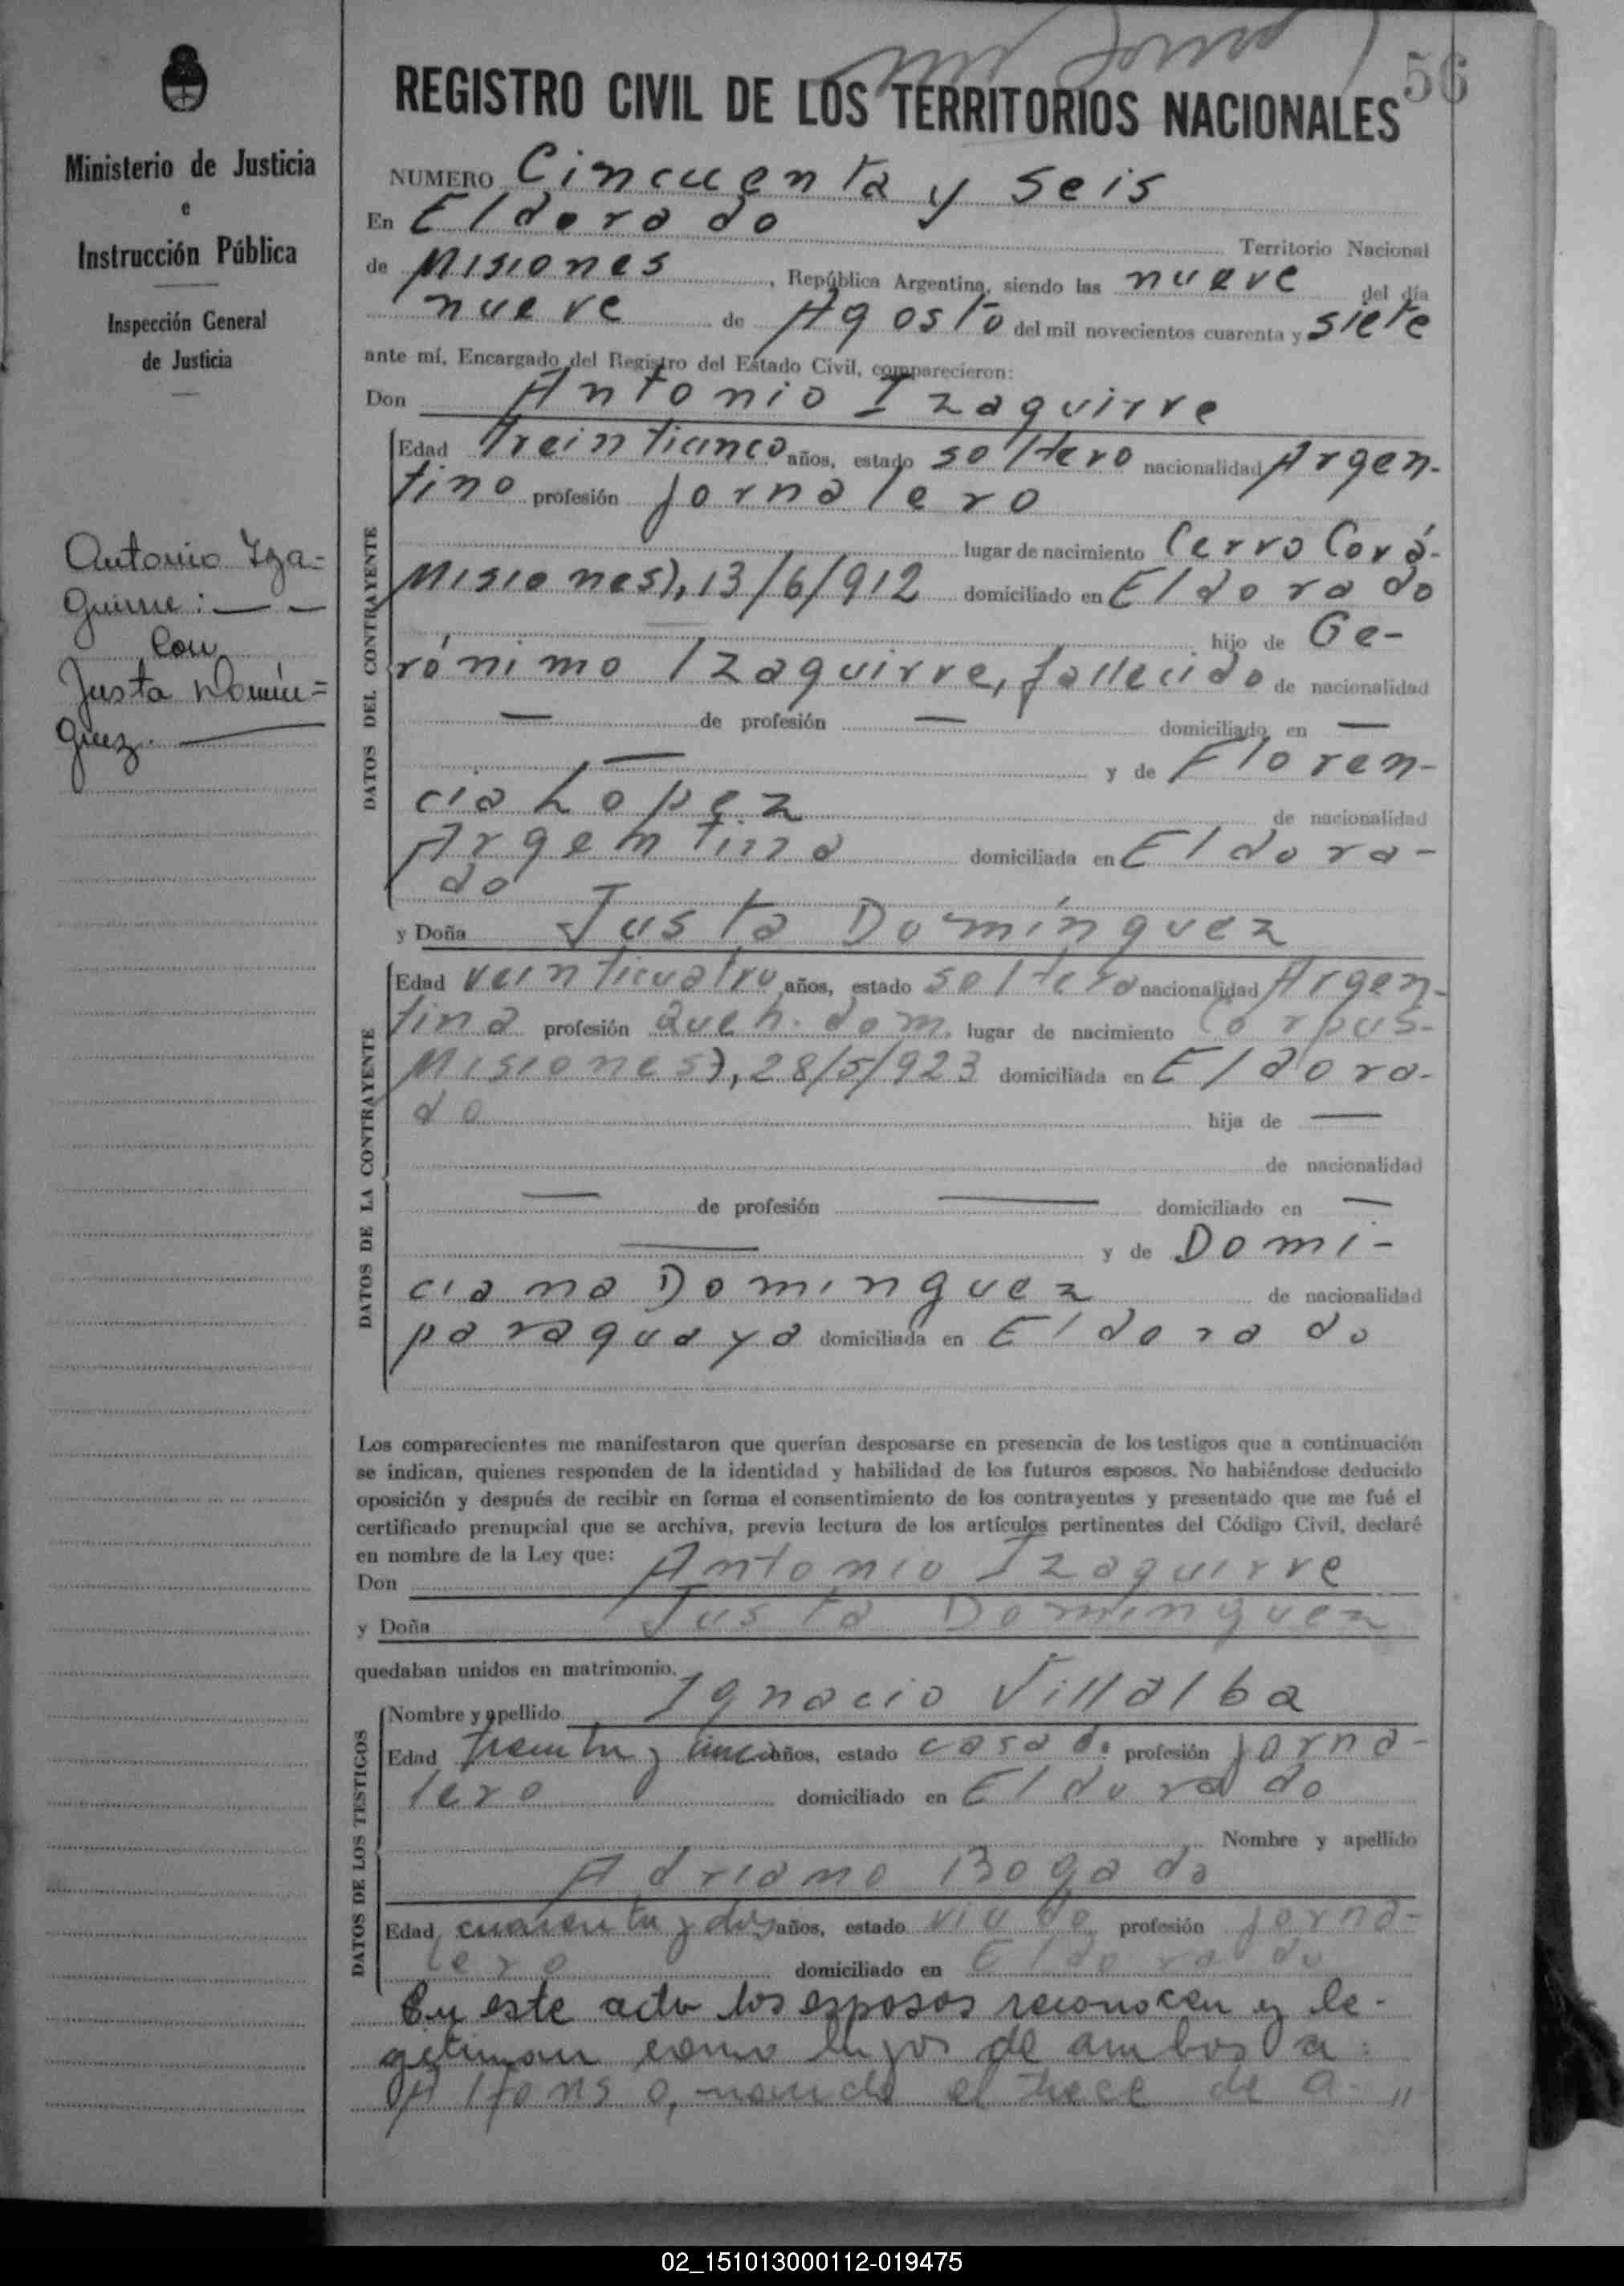 56
REGISTRO CIVIL DE LOS TERRITORIOS NACIONALES
Ministerio de Justicia
e
Instrucción Pública
Inspección General
de Justicia
Antonio Iza=
guirre: — —
con
Justa Domín=
guez. —
NUMERO Cincuenta y seis
En Eldorado Territorio Nacional
de Misiones, República Argentina, siendo las nueve del día
nueve de Agosto del mil novecientos cuarenta y siete
ante mí, Encargado del Registro del Estado Civil, comparecieron:
Don Antonio Izaguirre
DATOS DEL CONTRAYENTE
Edad treinticinco años, estado soltero nacionalidad Argen-
tino profesión jornalero
lugar de nacimiento Cerro Corá-
Misiones), 13/6/912 domiciliado en Eldorado
hijo de Ge-
rónimo Izaguirre, fallecido de nacionalidad
— de profesión — domiciliado en —
— y de Floren-
cia Lopez de nacionalidad
Argentina domiciliada en Eldora-
do
y Doña Justa Domínguez
DATOS DE LA CONTRAYENTE
Edad veinticuatro años, estado soltera nacionalidad Argen-
tina profesión Queh. dom. lugar de nacimiento Corpus-
Misiones), 28/5/923 domiciliada en Eldora-
do hija de —
de nacionalidad
— de profesión — domiciliado en —
— y de Domi-
ciana Dominguez de nacionalidad
paraguaya domiciliada en Eldorado
Los comparecientes me manifestaron que querían desposarse en presencia de los testigos que a continuación
se indican, quienes responden de la identidad y habilidad de los futuros esposos. No habiéndose deducido
oposición y después de recibir en forma el consentimiento de los contrayentes y presentado que me fué el
certificado prenupcial que se archiva, previa lectura de los artículos pertinentes del Código Civil, declaré
en nombre de la Ley que:
Don Antonio Izaguirre
y Doña Justa Dominguez
quedaban unidos en matrimonio.
DATOS DE LOS TESTIGOS
Nombre y apellido Ignacio Villalba
Edad treinta y cinco años, estado casado. profesión jorna-
lero domiciliado en Eldorado
Nombre y apellido
Adriano Bogado
Edad cuarenta y dos años, estado viudo profesión jorna-
lero domiciliado en Eldorado
En este acto los esposos reconocen y le-
gitiman como hijos de ambos a:
Alfonso, nacido el trece de a- "
02_151013000112-019475